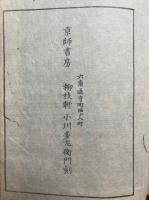 六角通寺町西入町
京師書房
柳枝軒小川多左衛門刻